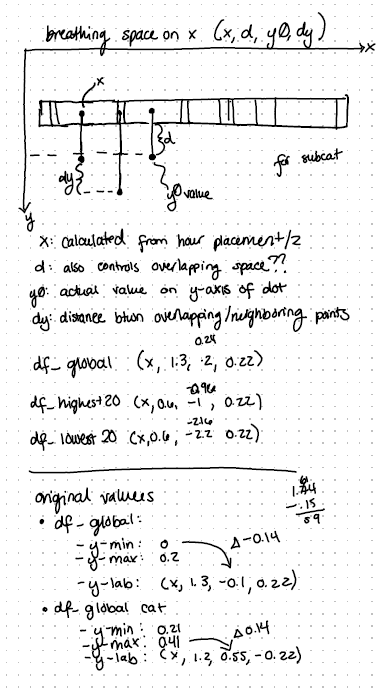 breathing space on x (x, d, yØ, dy)
x
x
d
for subcat
dy
yØ value
y
x: calculated from hour placement/2
d: also controls overlapping space??
yØ: actual value on y-axis of dot
dy: distance btwn overlapping/neighboring points
0.24
df_global (x, 1.3, .2, 0.22)
-0.96
df_highest20 (x, 0.6, -1, 0.22)
-2.16
df_lowest 20 (x, 0.6, -2.2 0.22)
original values
1.44
- .15
59
• df_global:
-y-min: 0
Δ-0.14
-y-max: 0.2
-y-lab: (x, 1.3, -0.1, 0.22)
• df_global cat
-y-min: 0.21
Δ0.14
-y-max: 0.41
-y-lab: (x, 1.2, 0.55, -0.22)